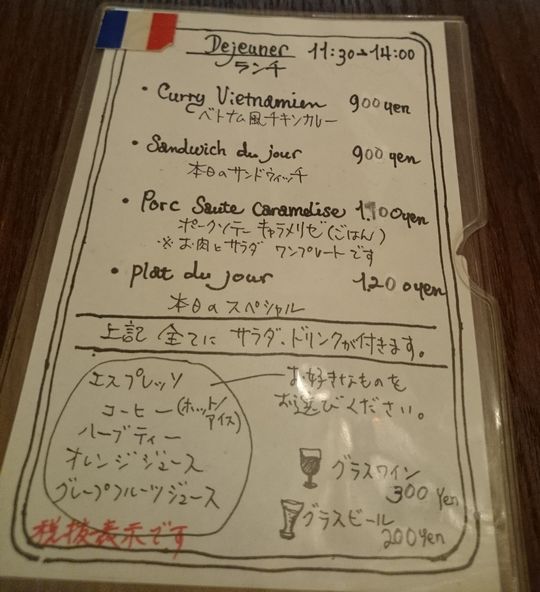 Dejeuner 11:30→14:00
ランチ
• Curry Vietnamien 900yen
ベトナム風チキンカレー
• Sandwich du jour 900yen
本日のサンドウィッチ
• Porc Saute Caramelise 1,100yen
ポークソテー キャラメリゼ(ごはん)
※お肉とサラダ ワンプレートです
• plat du jour 1,200yen
本日のスペシャル
上記全てに サラダ、ドリンクが付きます。
エスプレッソ
コーヒー(ホット/アイス)
ハーブティー
オレンジジュース
グレープフルーツジュース
お好きなものを
お選びください。
グラスワイン
300yen
グラスビール
200yen
税抜表示です